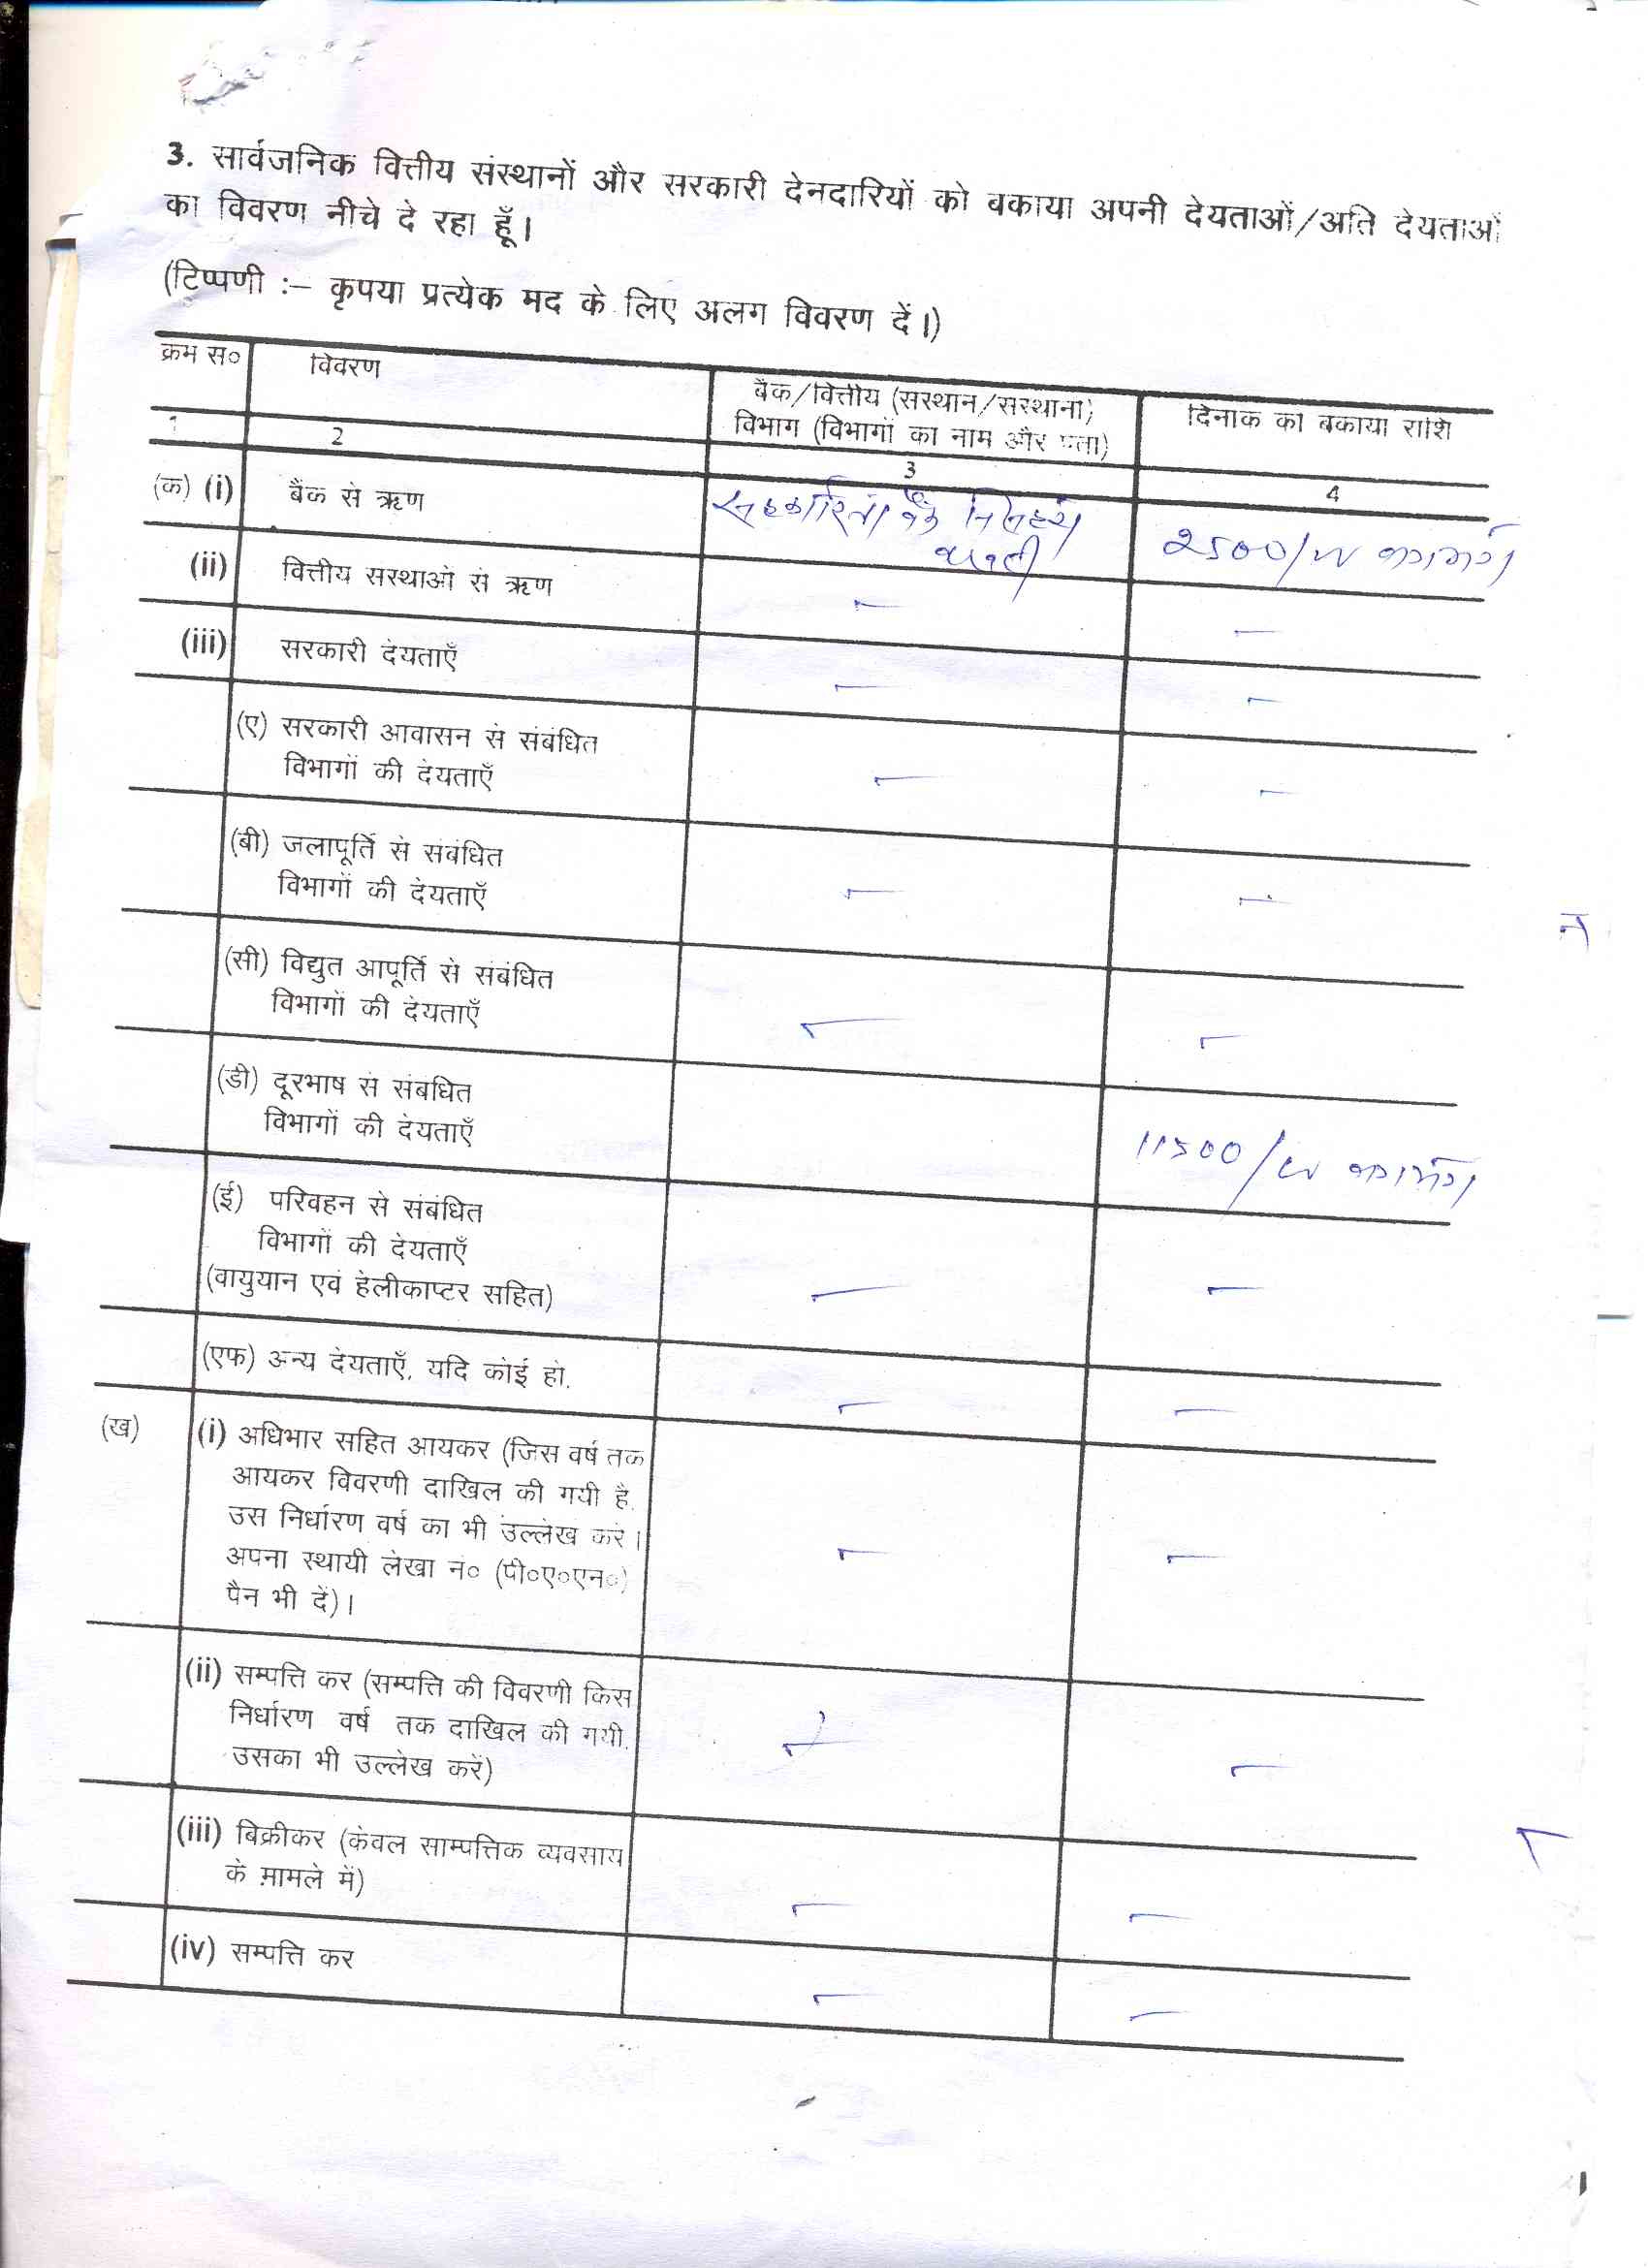 3. सार्वजनिक वित्तीय संस्थानों और सरकारी देनदारियों को बकाया अपनी देयताओं/अति देयताओं
का विवरण नीचे दे रहा हूँ।
(टिप्पणी :– कृपया प्रत्येक मद के लिए अलग विवरण दें।)
क्रम स० विवरण बैंक/वित्तीय (संस्थान/संस्थानों) दिनांक को बकाया राशि
विभाग (विभागों का नाम और पता)
1 2 3 4
(क) (i) बैंक से ऋण सहकारिता बैंक 2500/
(ii) वित्तीय संस्थाओं से ऋण – –
(iii) सरकारी देयताएँ – –
(ए) सरकारी आवासन से संबंधित
विभागों की देयताएँ – –
(बी) जलापूर्ति से संबंधित
विभागों की देयताएँ – –
(सी) विद्युत आपूर्ति से संबंधित
विभागों की देयताएँ – –
(डी) दूरभाष से संबंधित
विभागों की देयताएँ 11500/
(ई) परिवहन से संबंधित
विभागों की देयताएँ
(वायुयान एवं हेलीकाप्टर सहित) – –
(एफ) अन्य देयताएँ, यदि कोई हो. – –
(ख) (i) अधिभार सहित आयकर (जिस वर्ष तक
आयकर विवरणी दाखिल की गयी है,
उस निर्धारण वर्ष का भी उल्लेख करें।
अपना स्थायी लेखा नं० (पी०ए०एन०) – –
पैन भी दें)।
(ii) सम्पत्ति कर (सम्पत्ति की विवरणी किस
निर्धारण वर्ष तक दाखिल की गयी,
उसका भी उल्लेख करें) – –
(iii) बिक्रीकर (केवल साम्पत्तिक व्यवसाय
के मामले में) – –
(iv) सम्पत्ति कर – –